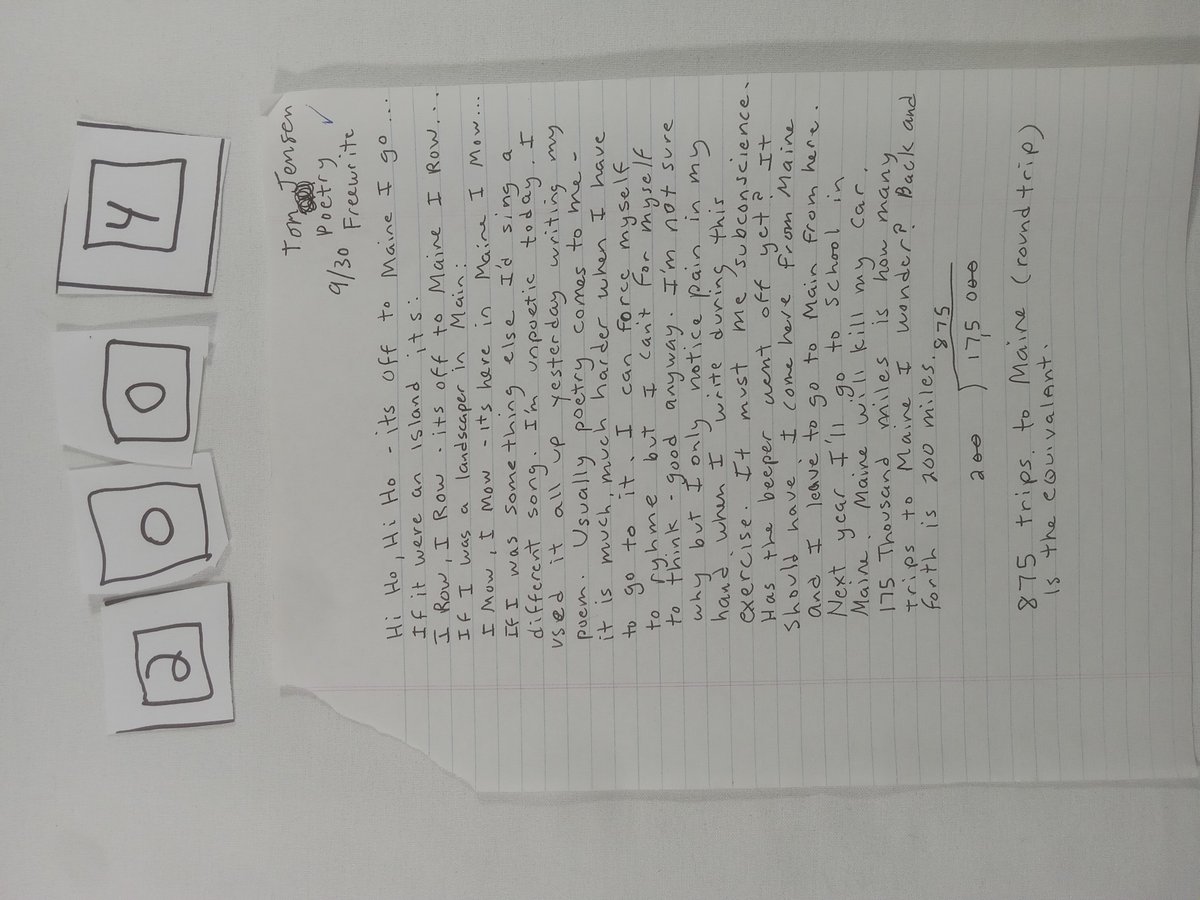 2 0 0 4
Tom Jensen
Poetry
9/30 Freewrite ✓
Hi Ho, Hi Ho - its off to Maine I go...
If it were an island its:
I Row, I Row - its off to Maine I Row...
If I was a landscaper in Main:
I Mow, I Mow - its here in Maine I Mow...
If I was something else I'd sing a
different song. I'm unpoetic today. I
used it all up yesterday writing my
poem. Usually poetry comes to me -
it is much, much harder when I have
to go to it. I can force myself
to ryhme but I can't for myself
to think - good anyway. I'm not sure
why but I only notice pain in my
hand when I write during this
exercise. It must me subconscience.
Has the beeper went off yet? It
should have. I come here from Maine
and I leave to go to Main from here.
Next year I'll go to school in
Maine. Maine will kill my car.
175 Thousand miles is how many
trips to Maine I wonder? Back and
forth is 200 miles.
875
200 ) 175,000
875 trips to Maine (round trip)
is the equivalant.